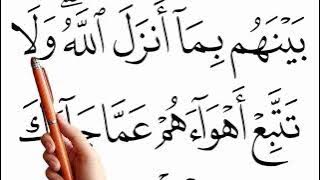 بَيْنَهُم بِمَآ أَنزَلَ ٱللَّهُ ۖ وَلَا
تَتَّبِعْ أَهْوَآءَهُمْ عَمَّا جَآءَكَ